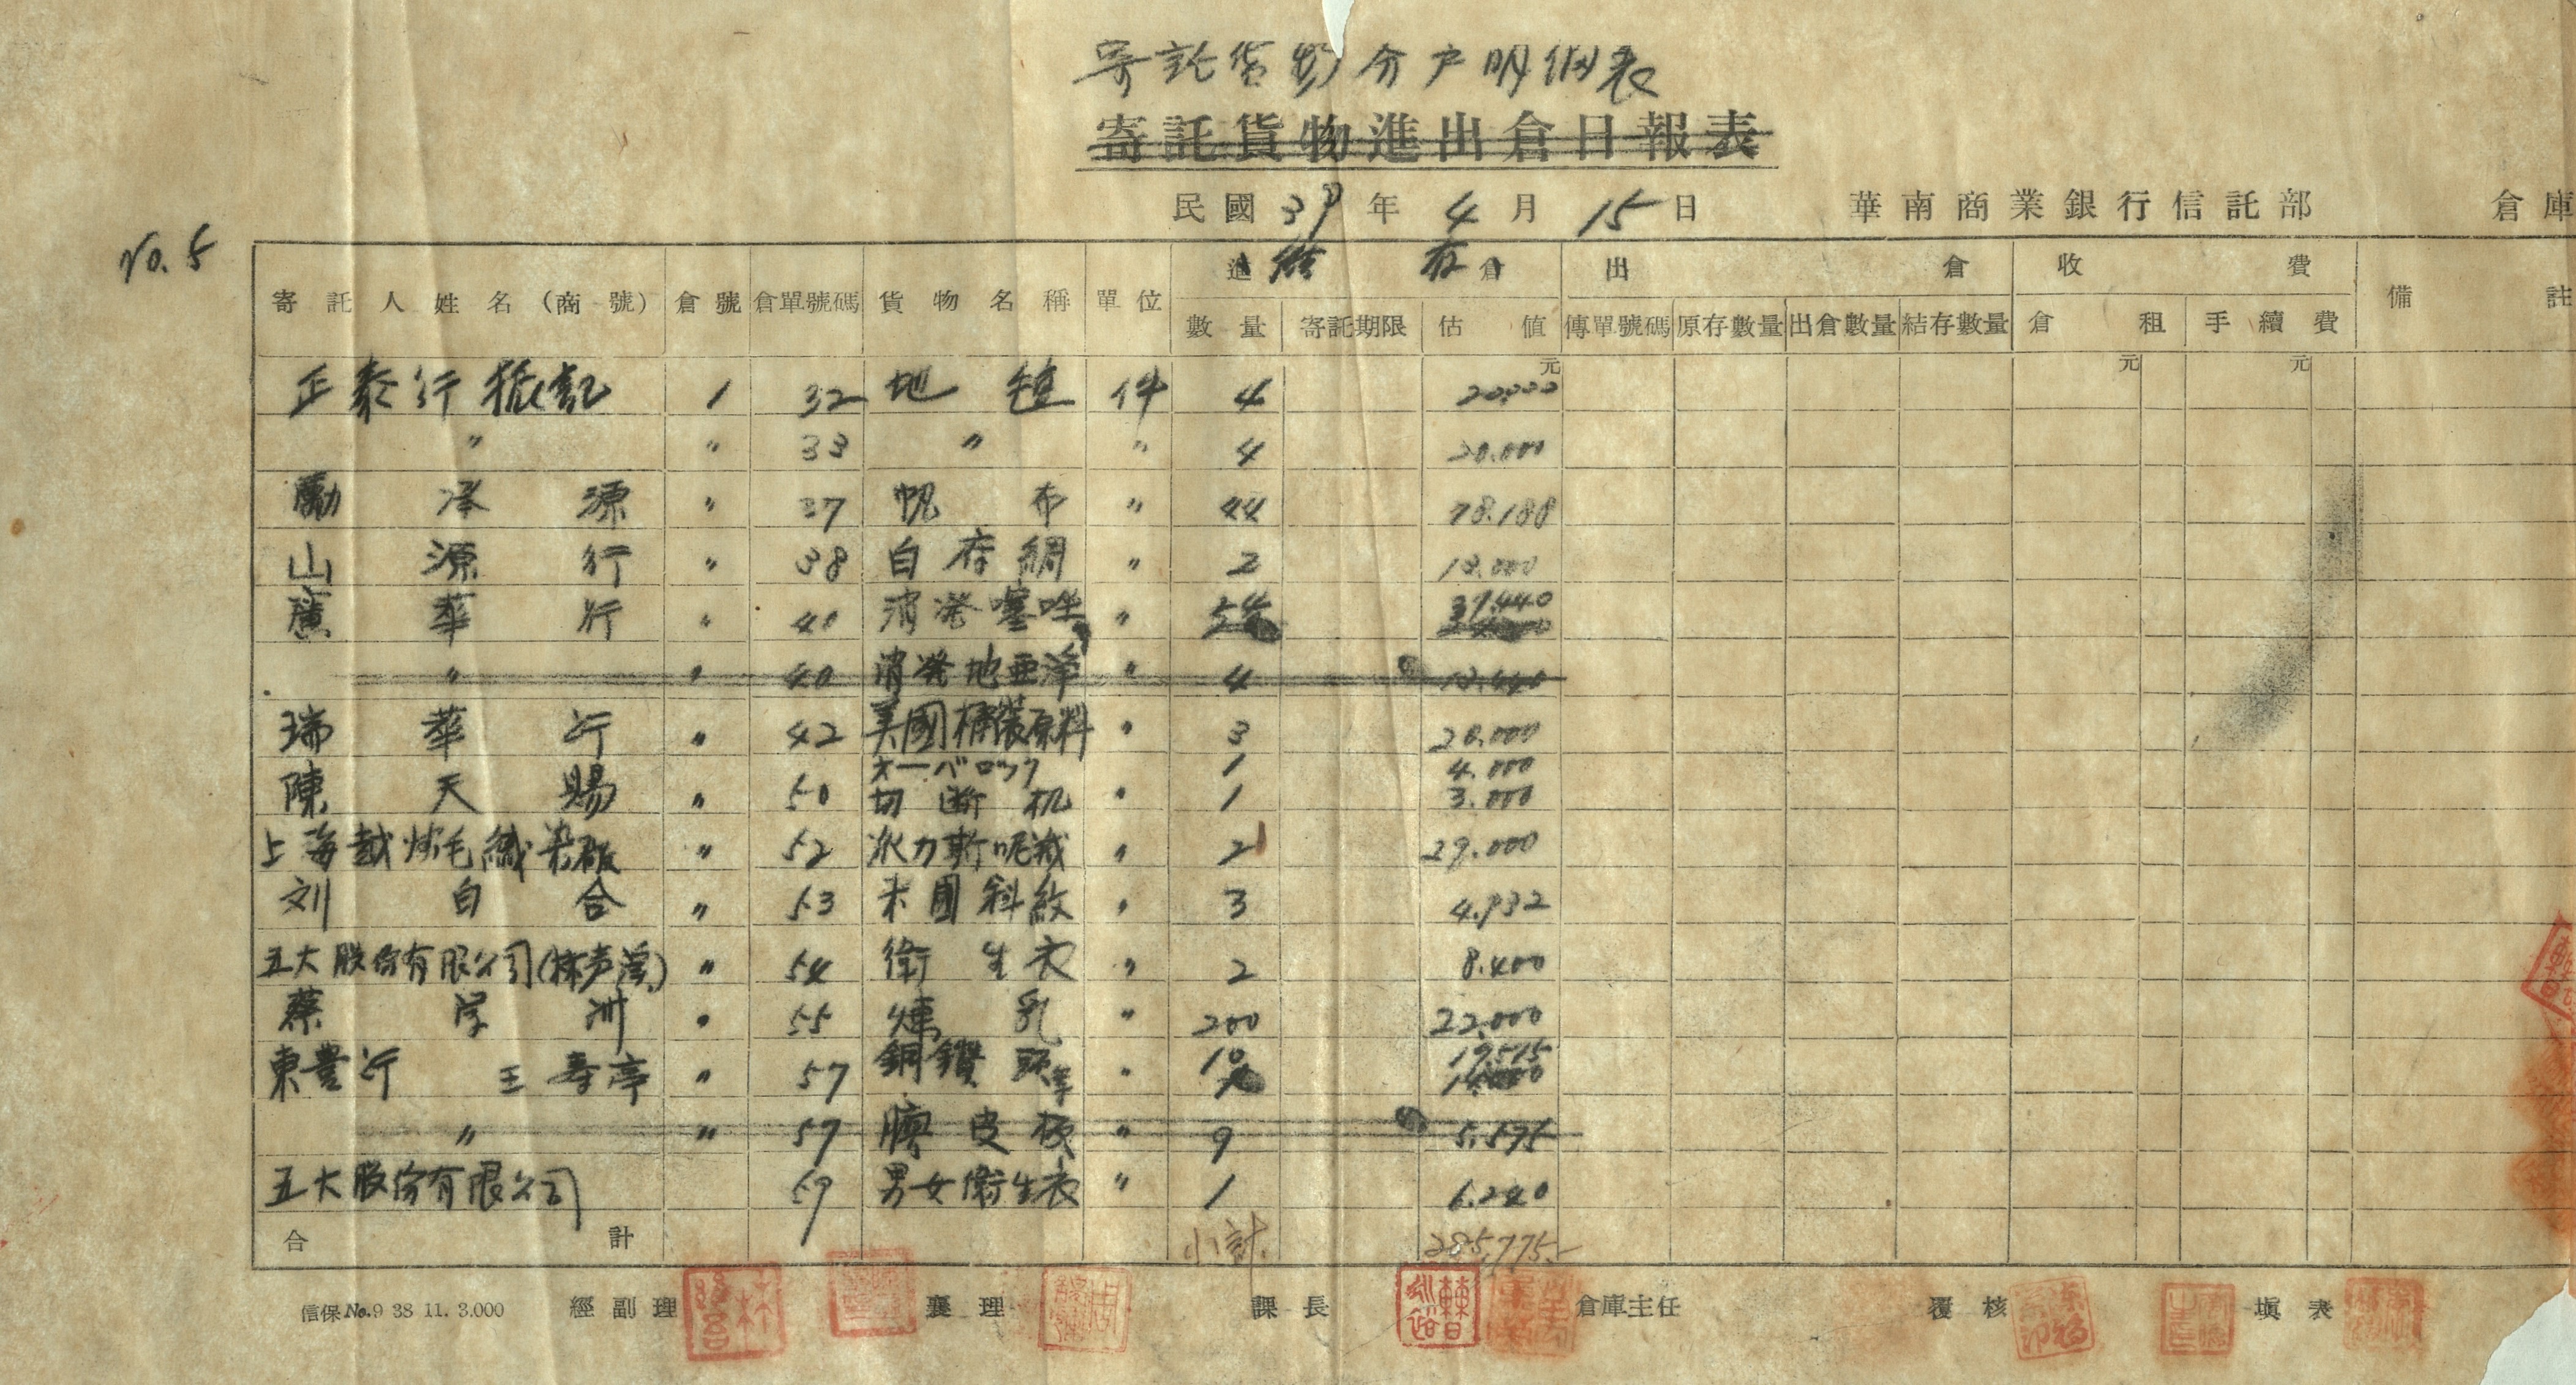 寄託貨物分戶明細表
寄託貨物進出倉日報表
民國39年4月15日 華南商業銀行信託部 倉庫
No. 5
寄託人姓名(商號) 倉號 倉單號碼 貨物名稱 單位 進結存倉 出倉 收費 備註
數量 寄託期限 估值 傳單號碼 原存數量 出倉數量 結存數量 倉租 手續費
元 元 元
正泰行振記 1 32 地毯 件 4 20.000
〃 〃 33 〃 〃 4 20.000
源 〃 37 帆布 〃 44 78.188
山源行 〃 38 白存綢 〃 2
廣華行 〃 40 〃 54 37.440
〃 〃 40 〃 4
瑞華行 〃 42 美國桶裝原料 〃 3 20.000
陳天賜 〃 50 オーバロック 1 4.000
切断机 〃 1 3.000
上海 毛織染廠 〃 52 派力斯呢絨 〃 21 29.000
刘自合 〃 53 斜紋 〃 3 4.932
五大股份有限公司 〃 54 衛生衣 〃 2 8.400
蔡 洲 〃 55 煉乳 〃 200 22.000
東豊行 王壽亭 〃 57 銅鑽頭 〃 19 19.515
〃 〃 57 膠皮板 〃 9 5.595
五大股份有限公司 59 男女衛生衣 〃 1 6.240
合計 小計 285,775.-
信保No.9 38 11. 3.000 經副理 襄理 課長 倉庫主任 覆核 填表